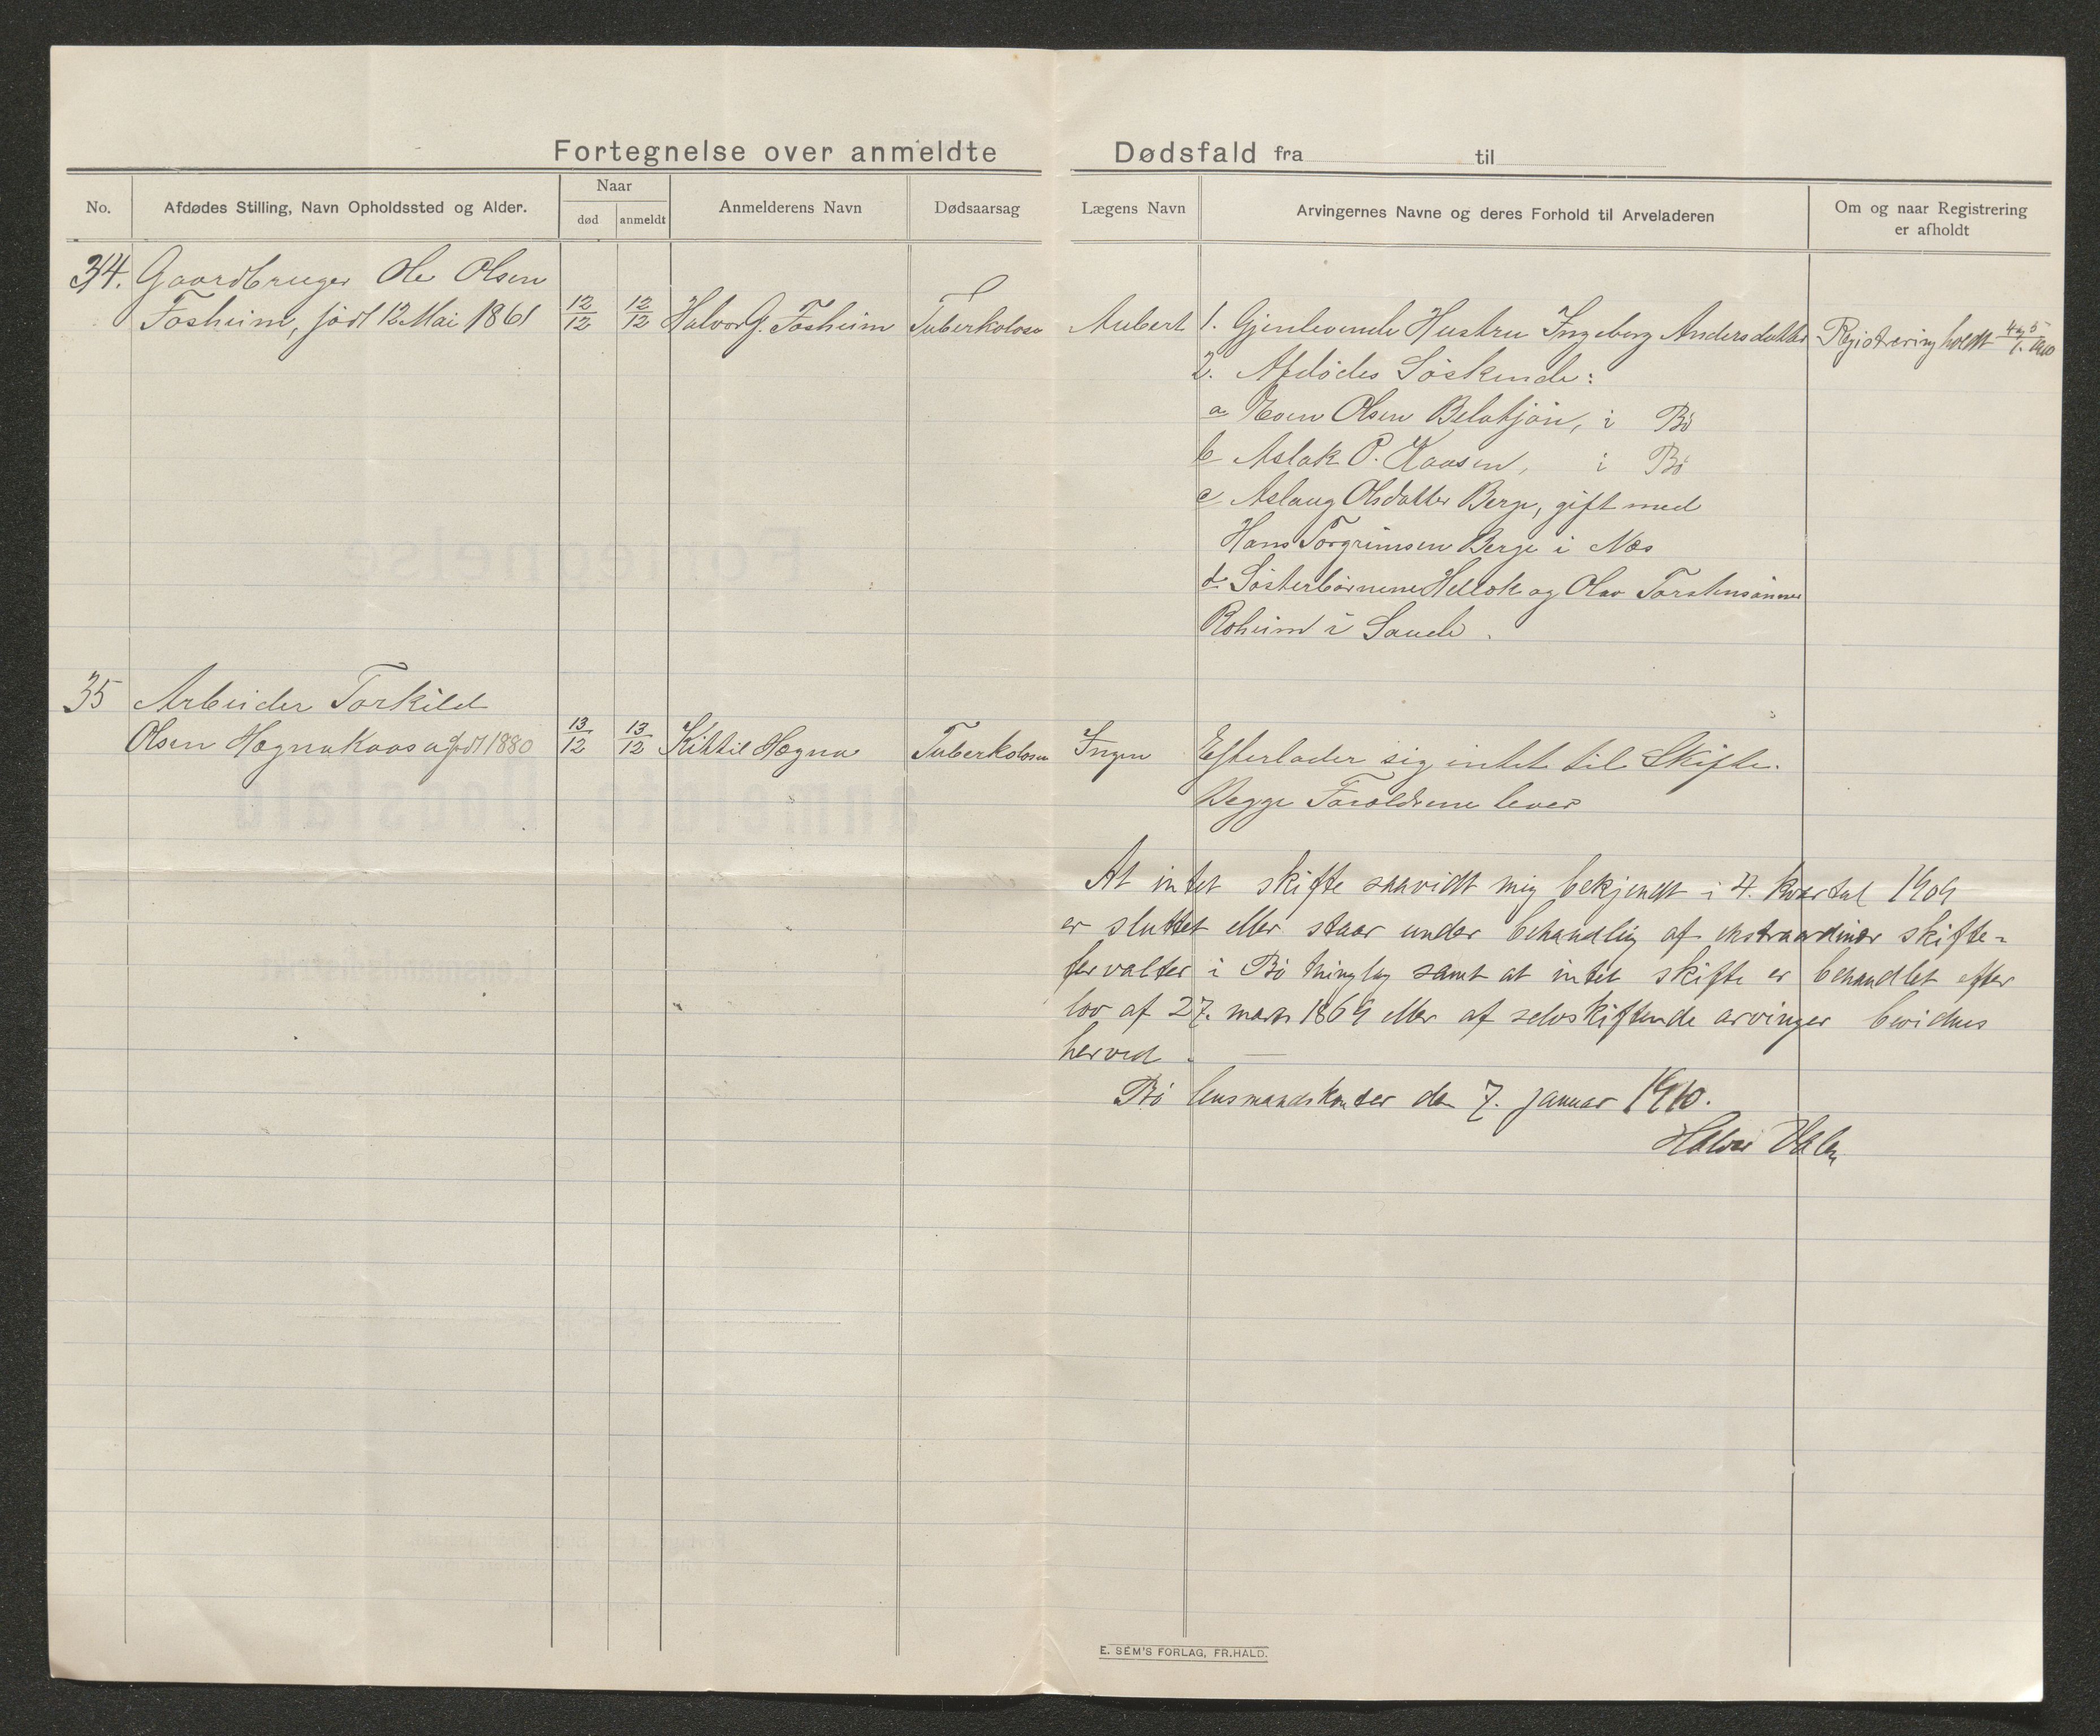 Fortegnelse over anmeldte Dødsfald fra til
No.
Afdødes Stilling, Navn Opholdssted og Alder.
Naar
død
anmeldt
Anmelderens Navn
Dødsaarsag
Lægens Navn
Arvingernes Navne og deres Forhold til Arveladeren
Om og naar Registrering
er afholdt
34. Gaardbruger Ole Olsen
Fosheim, født 12 Mai 1861
12/12
12/12
Halvor G. Fosheim
Tuberkolose
Aubert
1. Gjenlevende Hustru Ingeborg Andersdatter
Registrering holdt 4 og 5/1. 1910
2. Afdødes Søskende:
a Even Olsen , i Bø
b Aslak P. Kaasen, i Bø
c Aslaug Olsdatter Berge, gift med
Hans Torgrimsen Berge i Næs
d Søsterbørnene og Olav
Roheim i Saude.
35 Arbeider Torkild
Olsen født 1880
13/12
13/12
Kittil Hægna
Tuberkolose
Ingen
Efterlader sig intet til Skifte.
Begge Forældrene lever
At intet skifte saavidt mig bekjendt i 4. kvartal 1909
er sluttet eller staar under behandlig af ekstraordinær skifte-
forvalter i Bø thinglag samt at intet skifte er behandlet efter
lov af 27. marts 1869 eller af selvskiftende arvinger bevidnes
herved.
Bø lensmandskontor den 7. januar 1910.
Halvor
E. SEM'S FORLAG, FR.HALD.